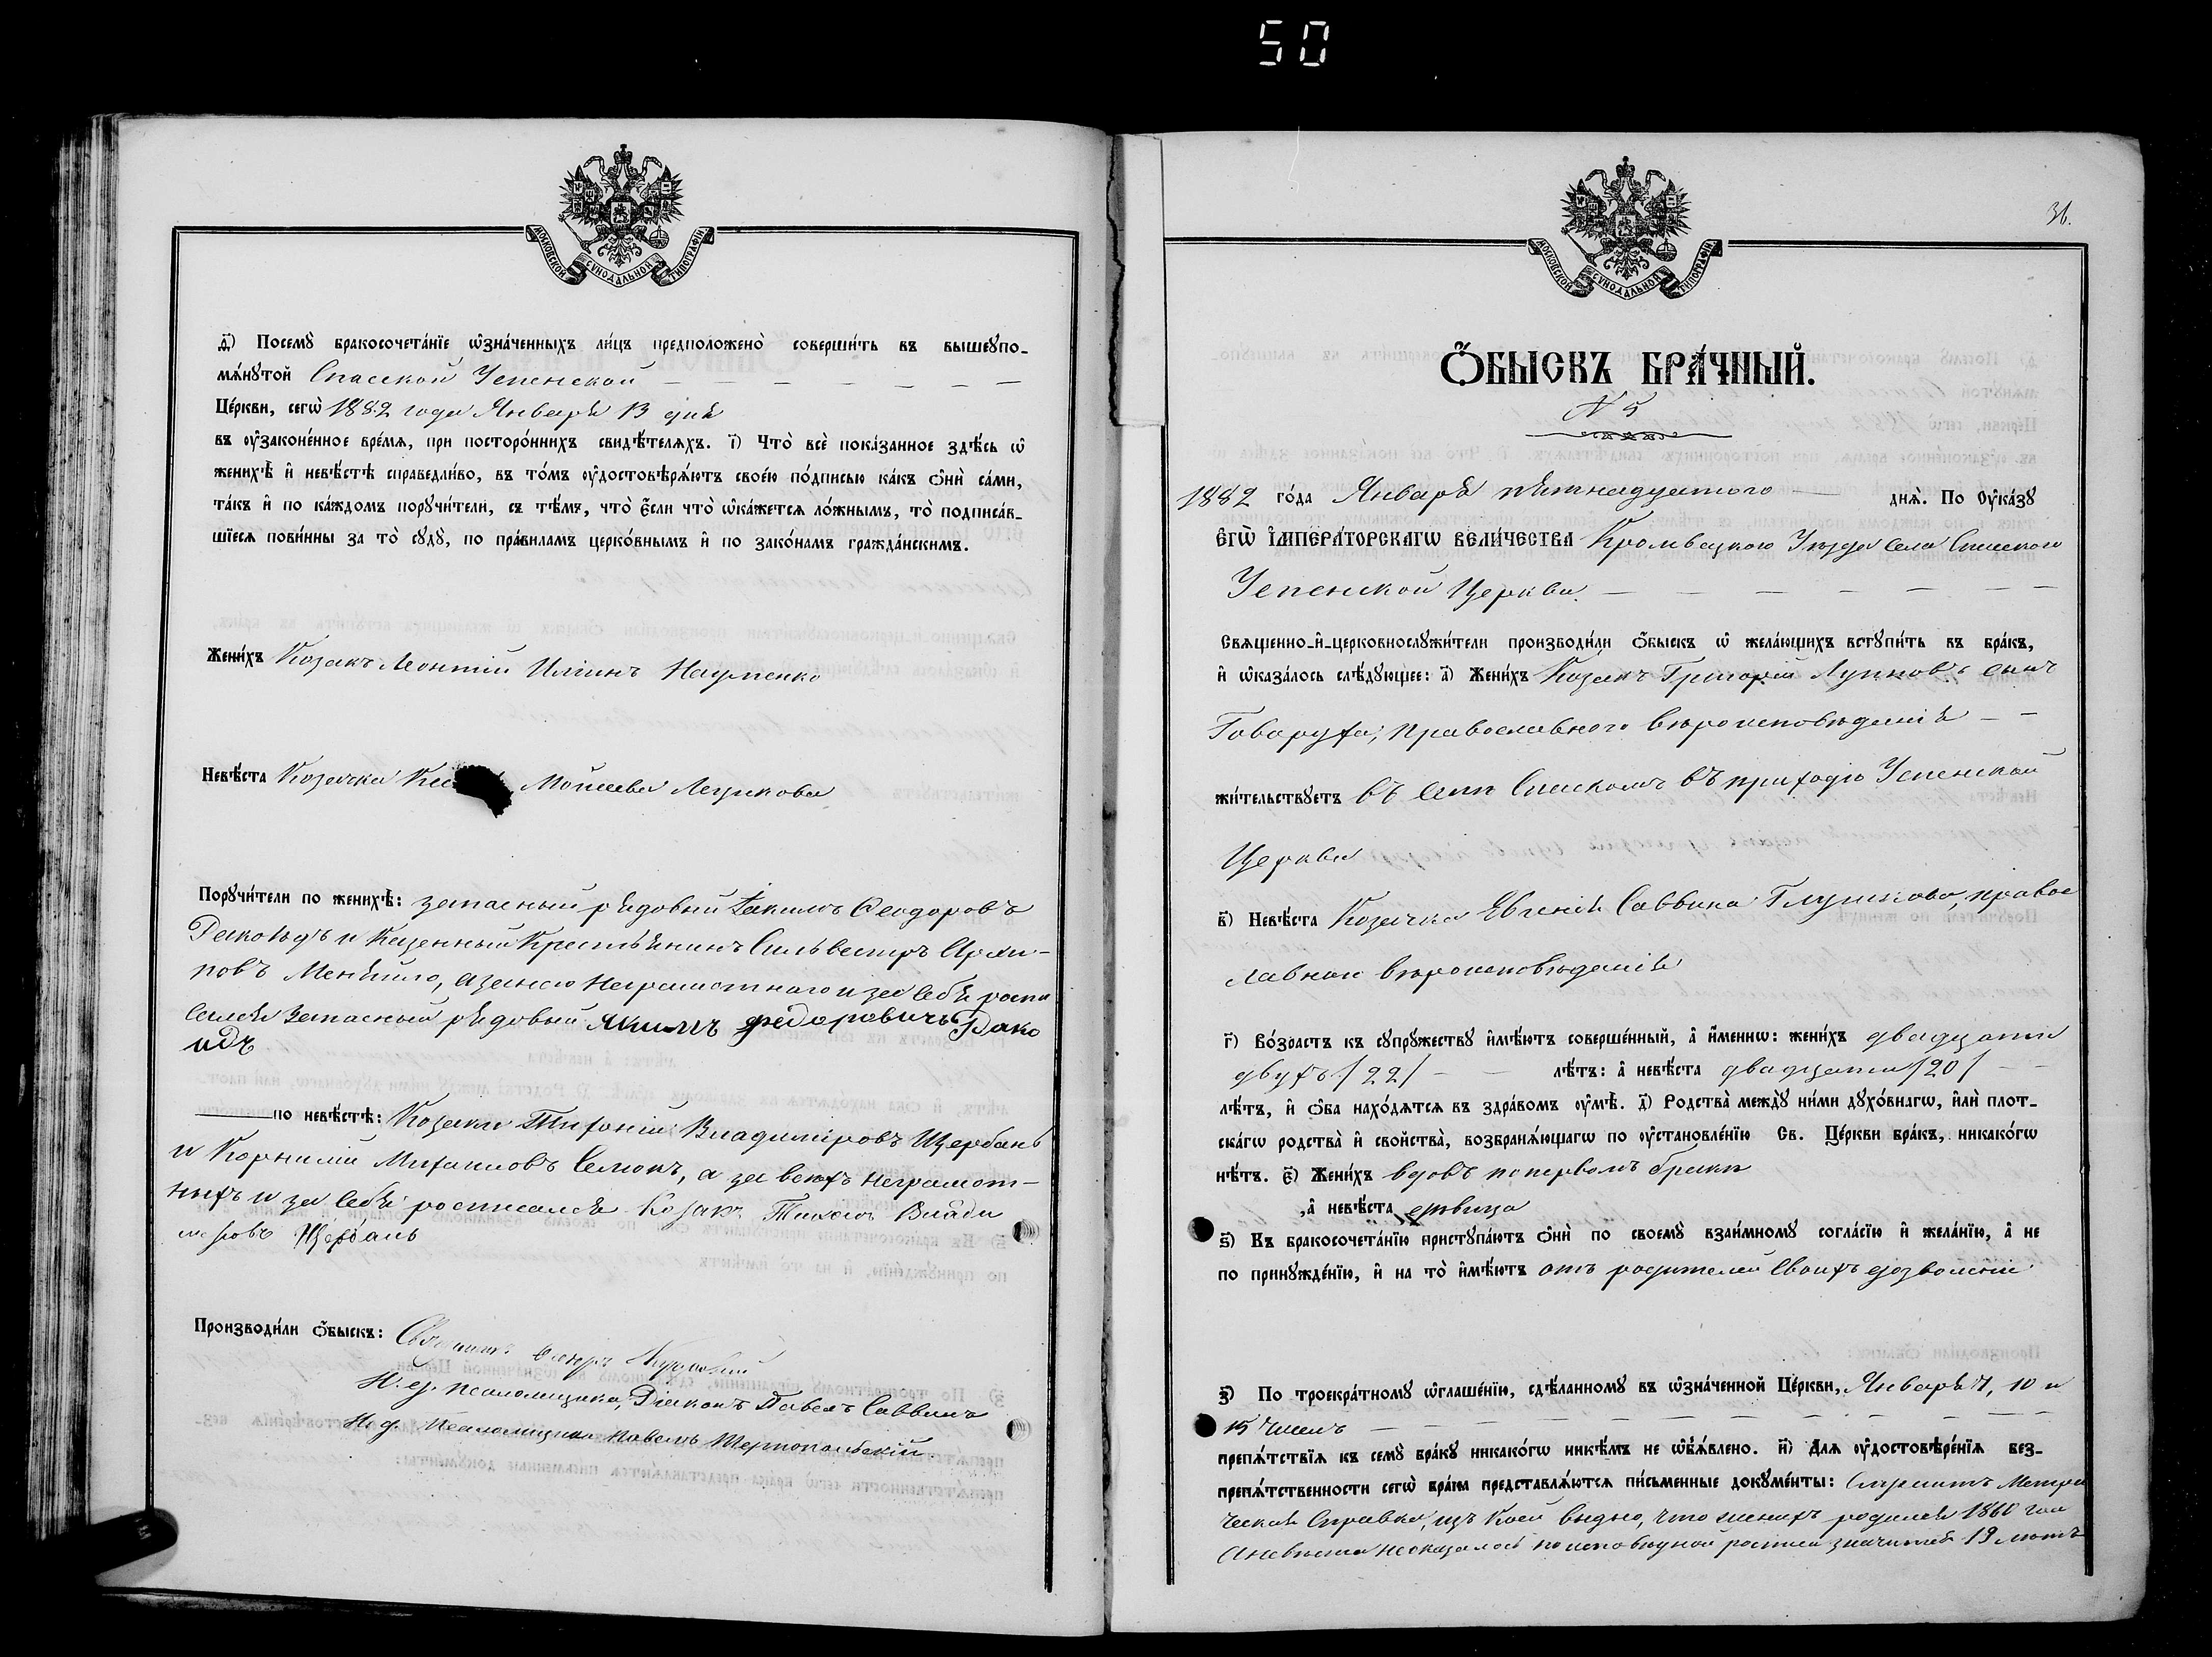 50
МОСКОВСКОЙ СѴНОДАЛЬНОЙ ТИПОГРАФІИ
д҃) Посемꙋ̀ бракосочета́нїе ѡ҆зна́ченныхъ ли́цъ предположено̀ соверши́ть въ вышеꙋпо-
мѧ́нꙋтой Спасской Успенской
Це́ркви, сегѡ̀ 1882 года Января 13 дня
въ ᲂу҆законе́нное вре́мѧ, при посторо́ннихъ свидѣ́телѧхъ. і҃) Что̀ всѐ пока́занное здѣ́сь ѡ҆
женихѣ̀ и҆ невѣ́стѣ справедли́во, въ то́мъ ᲂу҆достовѣрѧ́ютъ свое́ю по́дписью ка́къ ѻ҆нѝ са́ми,
та́къ и҆ по ка́ждомъ порꙋчи́тели, съ тѣ́мъ, что̀ є҆́сли что̀ ѡ҆ка́жетсѧ ло́жнымъ, то̀ подписа́в-
шїесѧ пови́нны за то̀ сꙋдꙋ̀, по пра́виламъ церко́внымъ и҆ по зако́намъ гражда́нскимъ.
Жени́хъ Козакъ Леонтій Илiинъ Науменко
Невѣ́ста Козачка Мойсеева
Порꙋчи́тели по женихѣ̀: запасный рядовый Іакимъ Ѳеодоровъ
и Казенный Крестьянинъ Сильвестръ Архи-
повъ а за неграмотнаго и за себя роспи
сался запасный рядовый Якимъ Федоровичъ Дако
идъ
по невѣ́стѣ: Козаки Тихоній Владиміровъ Щербань
и Корнилій Михаиловъ а за всехъ неграмот-
ныхъ и за себя росписался Козакъ Владе
меровъ Щербань
Производи́ли ѻ҆́быскъ: Священникъ
И. д. псаломщика, Діаконъ Павелъ Саввинъ
И. д. Псаломщика Павелъ
36.
МОСКОВСКОЙ СѴНОДАЛЬНОЙ ТИПОГРАФІИ
Ѻ҆́БЫСКЪ БРА́ЧНЫЙ.
N 5
1882 го́да Января пятнадцатого днѧ̀. По ᲂу҆ка́зꙋ
Є҆гѡ̀ І҆мпера́торскагѡ Вели́чества Кролевецкого Уезда села Спаского
Успенской Церкви.
Свѧще́нно-и҆-церковнослꙋжи́тели производи́ли ѻ҆́быскъ ѡ҆ жела́ющихъ встꙋпи́ть въ бра́къ,
и҆ ѡ҆каза́лось слѣ́дꙋющее: а҃) Жени́хъ Козакъ Григорій сынъ
Говоруха, православного вероисповеданія
жи́тельствꙋетъ въ селе Спаскомъ въ приходе Успенской
Церкви
в҃) Невѣ́ста Козачка Евгенія Саввина Глушкова, правос
лавнаго вероисповеданія
г҃) Во́зрастъ къ сꙋпрꙋ́жествꙋ и҆мѣ́ютъ соверше́нный, а҆ и҆́меннѡ: жени́хъ двадцати
двухъ /22/ лѣ́тъ: а҆ невѣ́ста двадцати /20/
лѣ́тъ, и҆ ѻ҆́ба нахо́дѧтсѧ въ здра́вомъ ᲂу҆мѣ̀. д҃) Родства̀ междꙋ̀ ни́ми дꙋхо́внагѡ, и҆лѝ плот-
ска́гѡ родства̀ и҆ свойства̀, возбранѧ́ющагѡ по ᲂу҆становле́нїю Св. Це́ркви бра́къ, никако́гѡ
нѣ́тъ. є҃) Жени́хъ вдовъ по первомъ браке
, а҆ невѣ́ста девица
ѕ҃) Къ бракосочета́нїю пристꙋпа́ютъ ѻ҆нѝ по своемꙋ̀ взаи́мномꙋ согла́сїю и҆ жела́нїю, а҆ не
по принꙋжде́нїю, и҆ на то̀ и҆мѣ́ютъ отъ родителей своихъ дозволеніе
з҃) По троекра́тномꙋ ѡ҆глаше́нїю, сдѣ́ланномꙋ въ ѡ҆зна́ченной Це́ркви, Января 7, 10 и
15 Чиселъ
препѧ́тствїѧ къ семꙋ̀ бра́кꙋ никако́гѡ никѣ́мъ не ѡ҆б̾ѧ́влено. и҃) Длѧ ᲂу҆достовѣре́нїѧ без-
препѧ́тственности сегѡ̀ бра́ка представлѧ́ютсѧ пи́сьменные докꙋме́нты: Метри
ческая Справка, изъ коей видно, что женихъ родился 1860 года
А невеста не оказалась по исповедной росписи значится 19 летъ